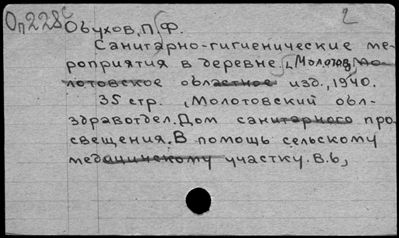 Оп228
2
Обухов, П. Ф.
Санитарно-гигиенические ме-
роприятия в деревне. Молотов, Мо-
лотовское областное изд., 1940.
35 стр. (Молотовский обл-
здравотдел. Дом санитарного про-
свещения. В помощь сельскому
медицинскому участку. В.6)